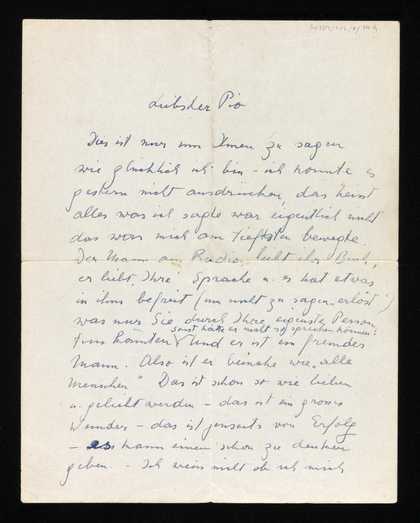 Liebster Pio
Dies ist nur um Ihnen zu sagen
wie glücklich ich bin – ich konnte es
gestern nicht ausdrücken, das heisst
alles was ich sagte war eigentlich nicht
das was mich am tiefsten bewegte.
Der Mann am Radio liebt Ihr Buch,
er liebt Ihre Sprache u. es hat etwas
in ihm befreit (um nicht zu sagen „erlöst“)
was nur Sie durch Ihre eigenste Person
sonst hätte er nicht so sprechen können:
tun konnten und er ist ein fremder
Mann. Also ist er beinahe wie „alle
Menschen“ Das ist schon so wie lieben
u. geliebt werden – das ist ein grosses
Wunder – das ist jenseits von Erfolg
– es kann einem schon zu denken
geben. – Ich weiss nicht ob ich mich